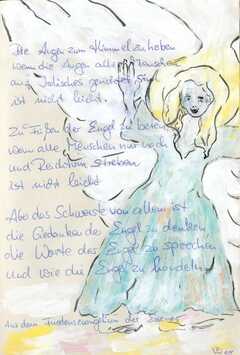 Die Augen zum Himmel zu heben
wenn die Augen aller Menschen
auf Irdisches gerichtet sind
ist nicht leicht.
Zu Füßen der Engel zu beten
wenn alle Menschen nur nach
und Reichtum streben
ist nicht leicht
Abo das Schwerste von allem ist
die Gedanken des Engel zu denken
die Worte des Engel zu sprechen
und wie die Engel zu handeln.
Aus dem Friedensevangelium der Essener